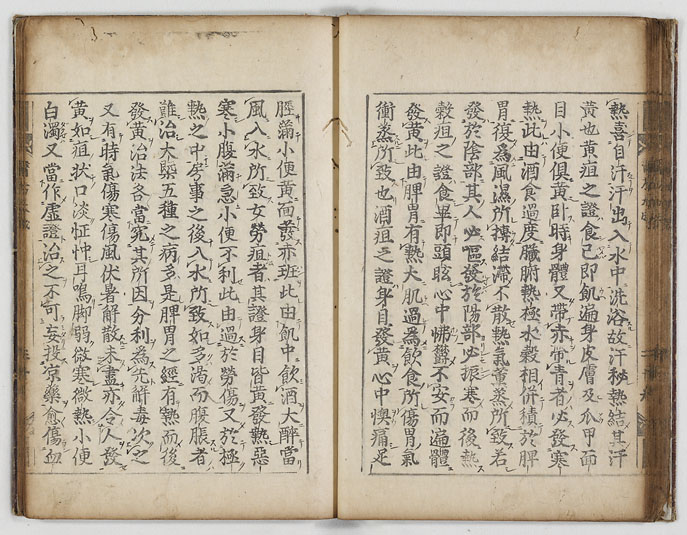 熱喜自汗汗出入水中洗浴故汗秘熱結其汗
黄也黄疸之證食已即飢遍身皮膚及爪甲面
目小便俱黄卧時身體又帶赤帶青者必發寒
熱此由酒食過度臟腑熱極水穀相併積於脾
胃復為風濕所搏結滯不散熱氣薰蒸所致若
發於陰部其人必嘔發於陽部必振寒而後熱
穀疸之證食畢即頭眩心中怫欝不安而遍體
發黄此由脾胃有熱大肌過為飲食所傷胃氣
衝蒸所致也酒疸之證身目發黄心中懊痛足
脛滿小便黄面發赤斑此由飢中飲酒大醉當
風入水所致女勞疸者其證身目皆黄發熱惡
寒小腹滿急小便不利此由過於勞傷又於極
熱之中房事之後入水所致如多渇而腹脹者
誰治大槩五種之病多是脾胃之經有熱而後
發黄治法各當究其所因分利為先解毒次之
又有時氣傷寒傷風伏暑解散未盡亦令人發
黄如疸状口淡怔忡耳鳴脚弱微寒微熱小便
白濁又當作虚證治之不可妄投凉藥愈傷血